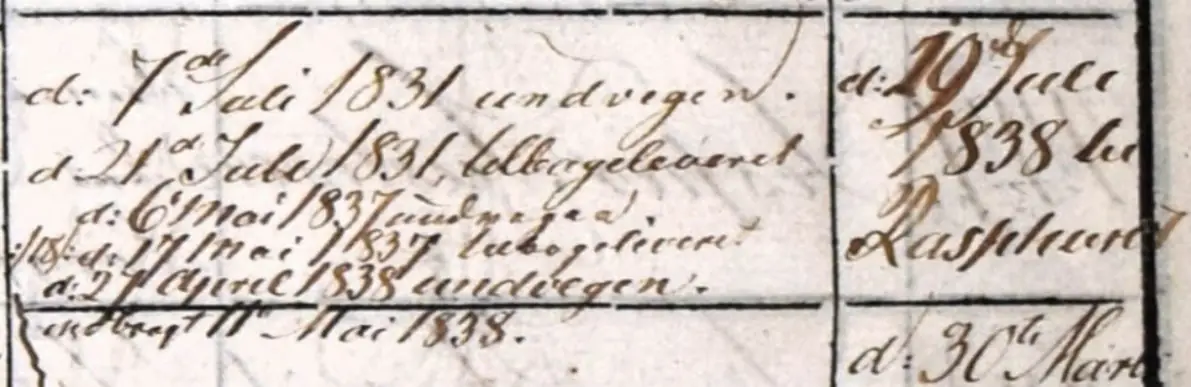 d: 7de Juli 1831 undvegen.
d 21d Juli 1831, tilbageleveret
d: 6 Mai 1837 undvegen.
d: 17 Mai 1837 tilbageleveret
d: 27 April 1838 undvegen.
indbragt 11te Mai 1838.
d: 19de Juli
1838 til
Rasphuset
d: 30te Marti